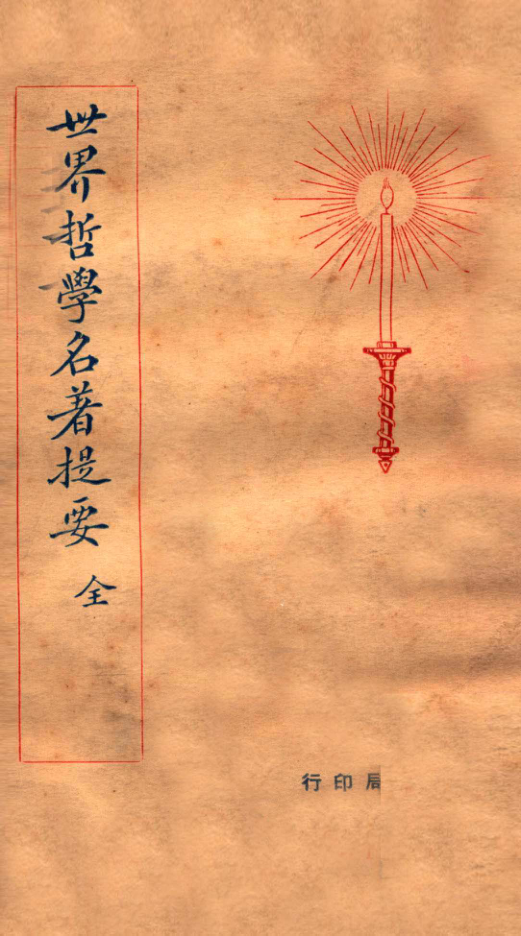 世界哲學名著提要 全
局印行